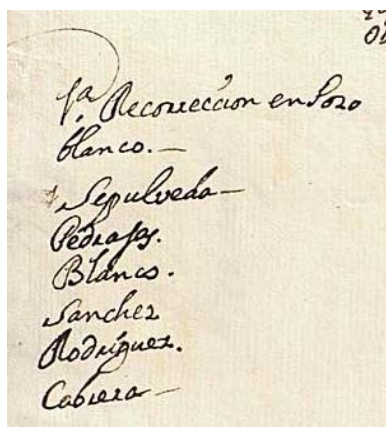 1.ª Recorrección en Pozo
blanco.—
Sepulveda—
Pedrajas.
Blanco.
Sanchez
Rodriguez.
Cabrera—